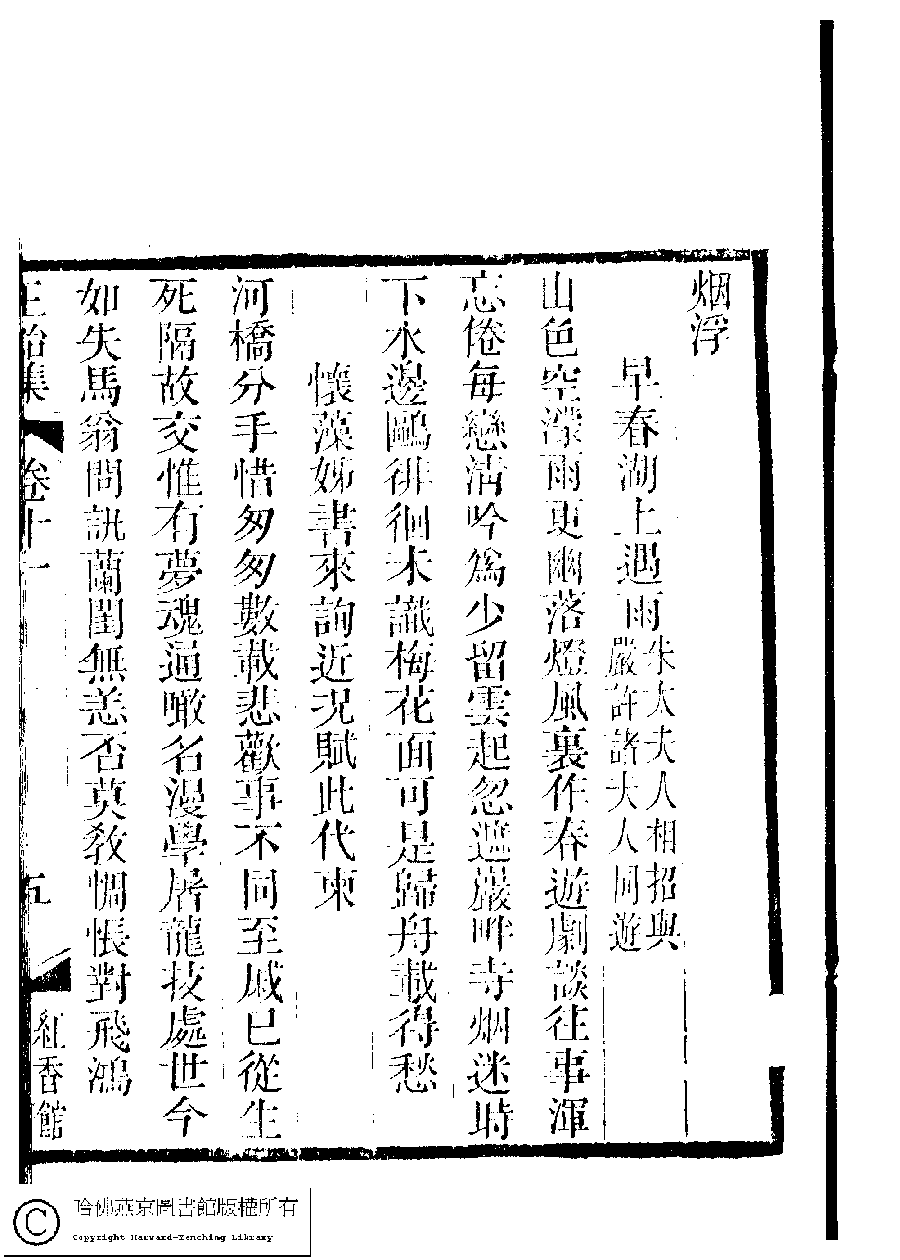 烟浮
早春湖上遇雨
朱太夫人相招與
嚴許諸夫人同遊
山色空濛雨更幽落燈風裏作春遊劇談往事渾
忘倦每戀清吟爲少留雲起忽遮巖畔寺烟迷時
下水邊鷗徘徊未識梅花面可是歸舟載得愁
懷藻姊書來詢近况賦此代柬
河橋分手惜匆匆數載悲歡事不同至戚已從生
死隔故交惟有夢魂通噉名漫學屠龍技處世今
如失馬翁問訊蘭閨無恙否莫教惆悵對飛鴻
正始集 卷十一 五 紅香館
哈佛燕京圖書館版權所有
Copyright Harvard-Yenching Library